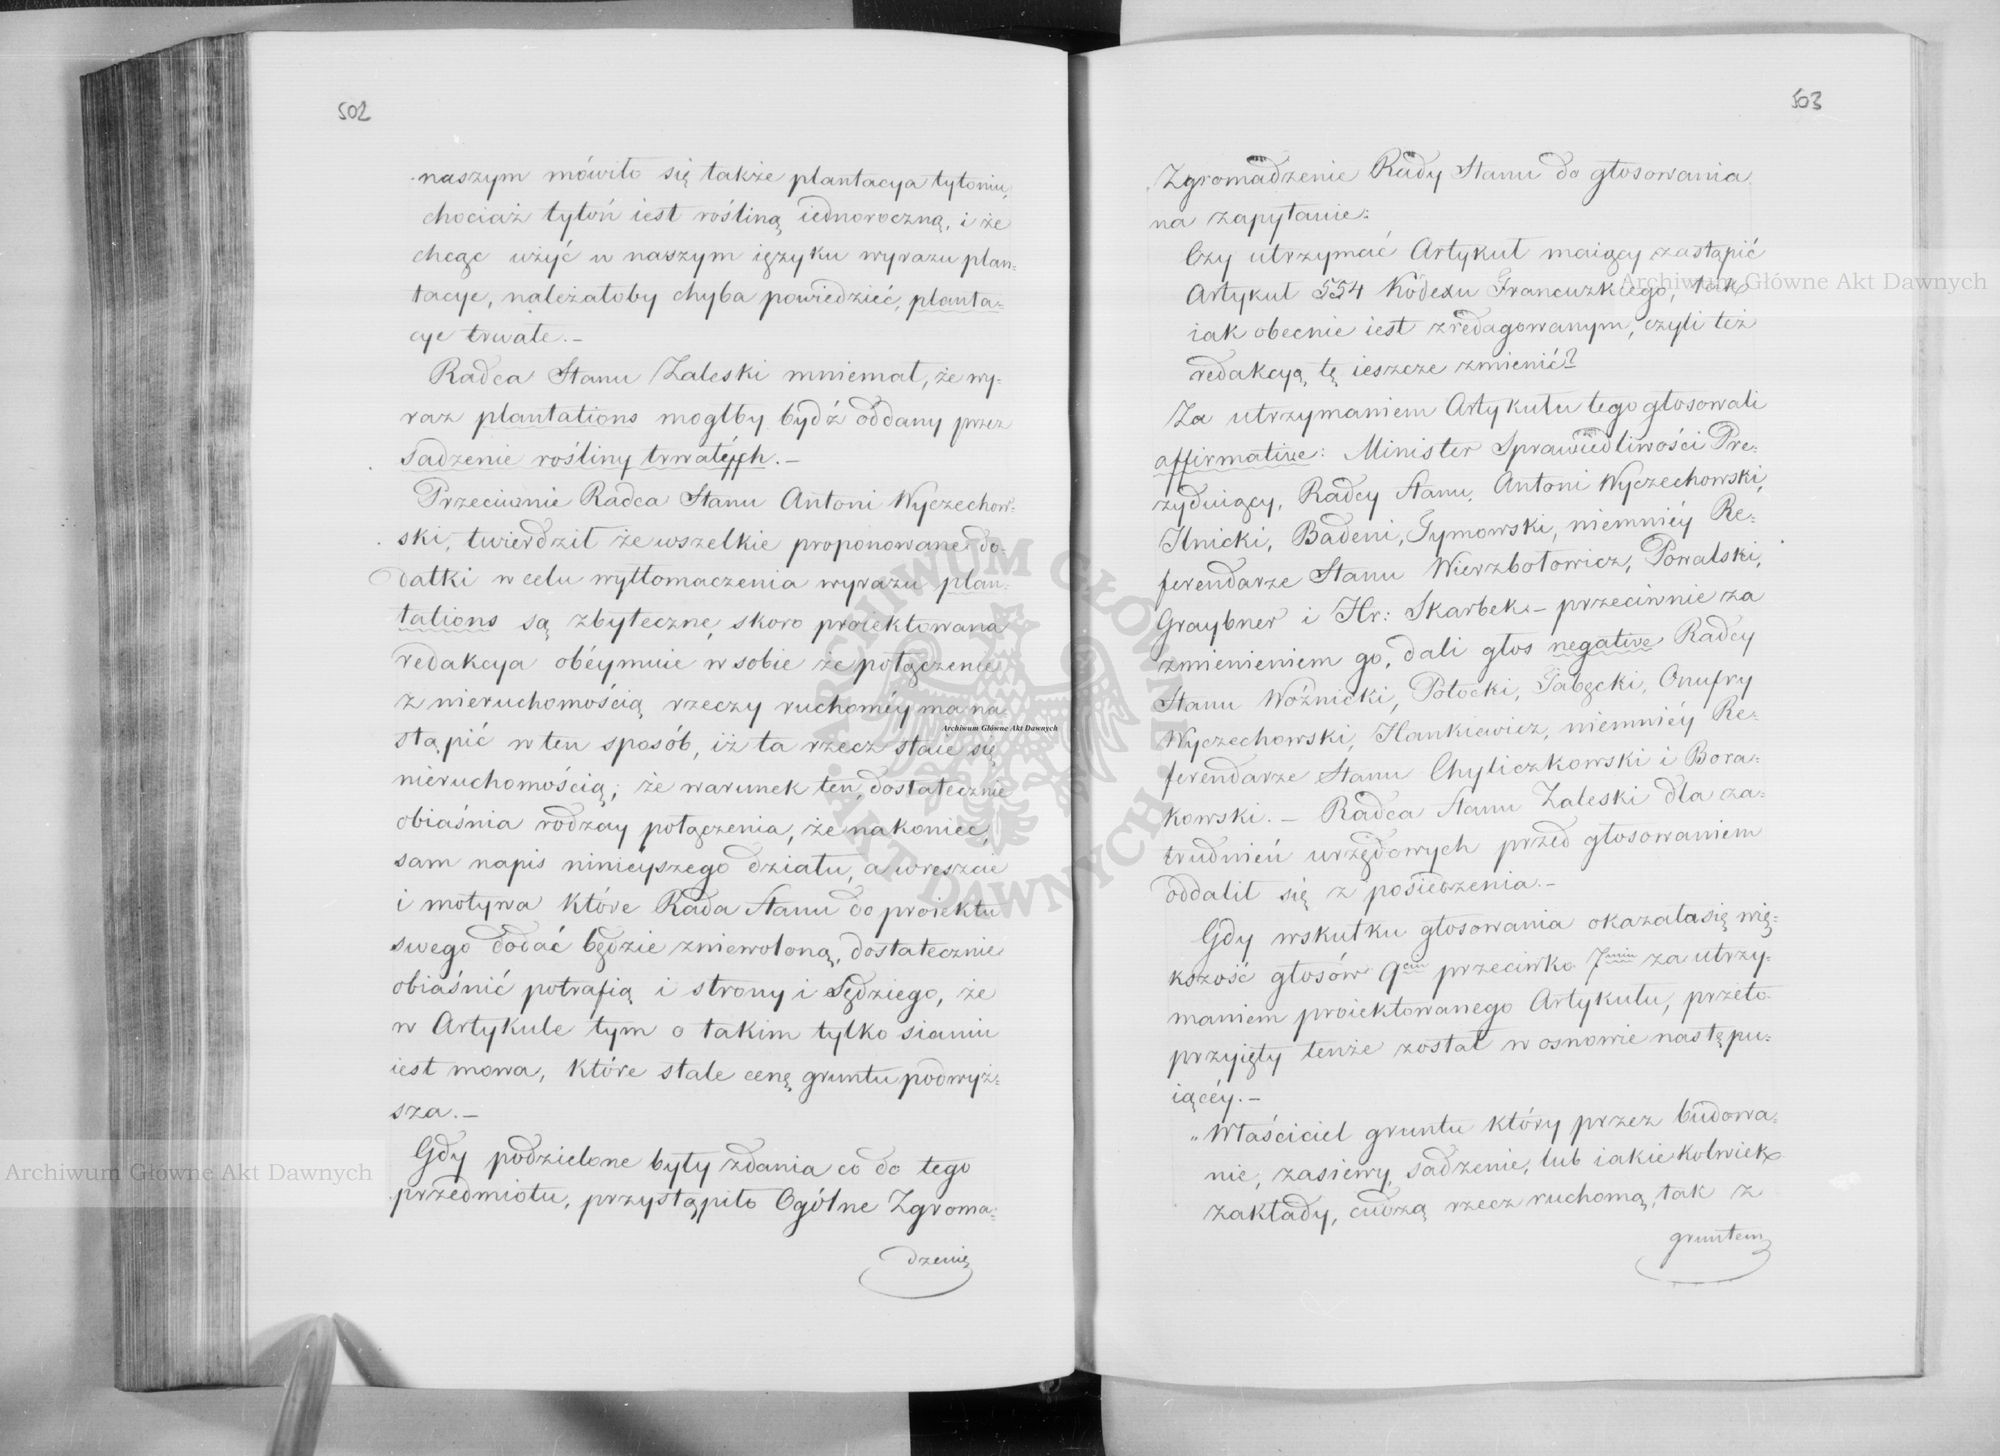 502
naszym mówiło się także plantacya tytoniu,
chociaż tytoń iest rośliną iednoroczną, i że
chcąc użyć w naszym ięzyku wyrazu plan=
tacye, należałoby chyba powiedzieć, planta=
cye trwałe.–
Radca Stanu Zaleski mniemał, że wy=
raz plantations mogłby bydź oddany przez
sadzenie rośliny trwałéy.–
Przeciwnie Radca Stanu Antoni Wyczechow=
ski, twierdził że wszelkie proponowane do=
datki w celu wytłomaczenia wyrazu plan=
tations są zbyteczne, skoro proiektowana
redakcya obéymuie w sobie że połączenie
z nieruchomością rzeczy ruchoméy ma na
stąpić w ten sposób, iż ta rzecz staie się
nieruchomością; że warunek ten, dostatecznie
obiaśnia rodzay połączenia, że nakoniec,
sam napis ninieyszego działu, a wreszcie
i motywa które Rada Stanu do proiektu
swego dodać będzie zniewoloną, dostatecznie
obiaśnić potrafią i strony i Sędziego, że
w Artykule tym o takim tylko sianiu
iest mowa, które stale cenę gruntu podwyż=
sza.–
Gdy podzielone były zdania co do tego
przedmiotu, przystąpiło Ogólne Zgroma=
dzenie
503
Zgromadzenie Rady Stanu do głosowania
na zapytanie:
Czy utrzymać Artykuł maiący zastąpić
Artykuł 554 Kodexu Francuzkiego, tak
iak obecnie iest zredagowanym, czyli też
redakcyą tę ieszcze zmienić?
Za utrzymaniem Artykułu tego głosowali
affirmative: Minister Sprawiedliwości Pre=
zyduiący, Radcy Stanu, Antoni Wyczechowski,
Ilnicki, Badeni, Tymowski, niemniéy Re=
ferendarze Stanu Wierzbołowicz, Powalski,
Graybner i Hr: Skarbek – przeciwnie za
zmienieniem go, dali głos negative Radcy
Stanu Woźnicki, Potocki, Łabęcki, Onufry
Wyczechowski, Hankiewicz, niemniéy Re=
ferendarze Stanu Chyliczkowski i Bora=
kowski.– Radca Stanu Zaleski dla za=
trudnień urzędowych przed głosowaniem
oddalił się z posiedzenia.–
Gdy wskutku głosowania okazała się wię=
kszość głosów 9ciu przeciwko 7miu za utrzy=
maniem proiektowanego Artykułu, przeto
przyięty tenże został w osnowie następu=
iącéy.–
„Właściciel gruntu który przez budowa=
nie, zasiewy, sadzenie, lub iakiekolwiek
zakłady, cudzą rzecz ruchomą, tak z
gruntem
Archiwum Główne Akt Dawnych
Archiwum Główne Akt Dawnych
Archiwum Główne Akt Dawnych
ARCHIWUM GŁÓWNE AKT DAWNYCH